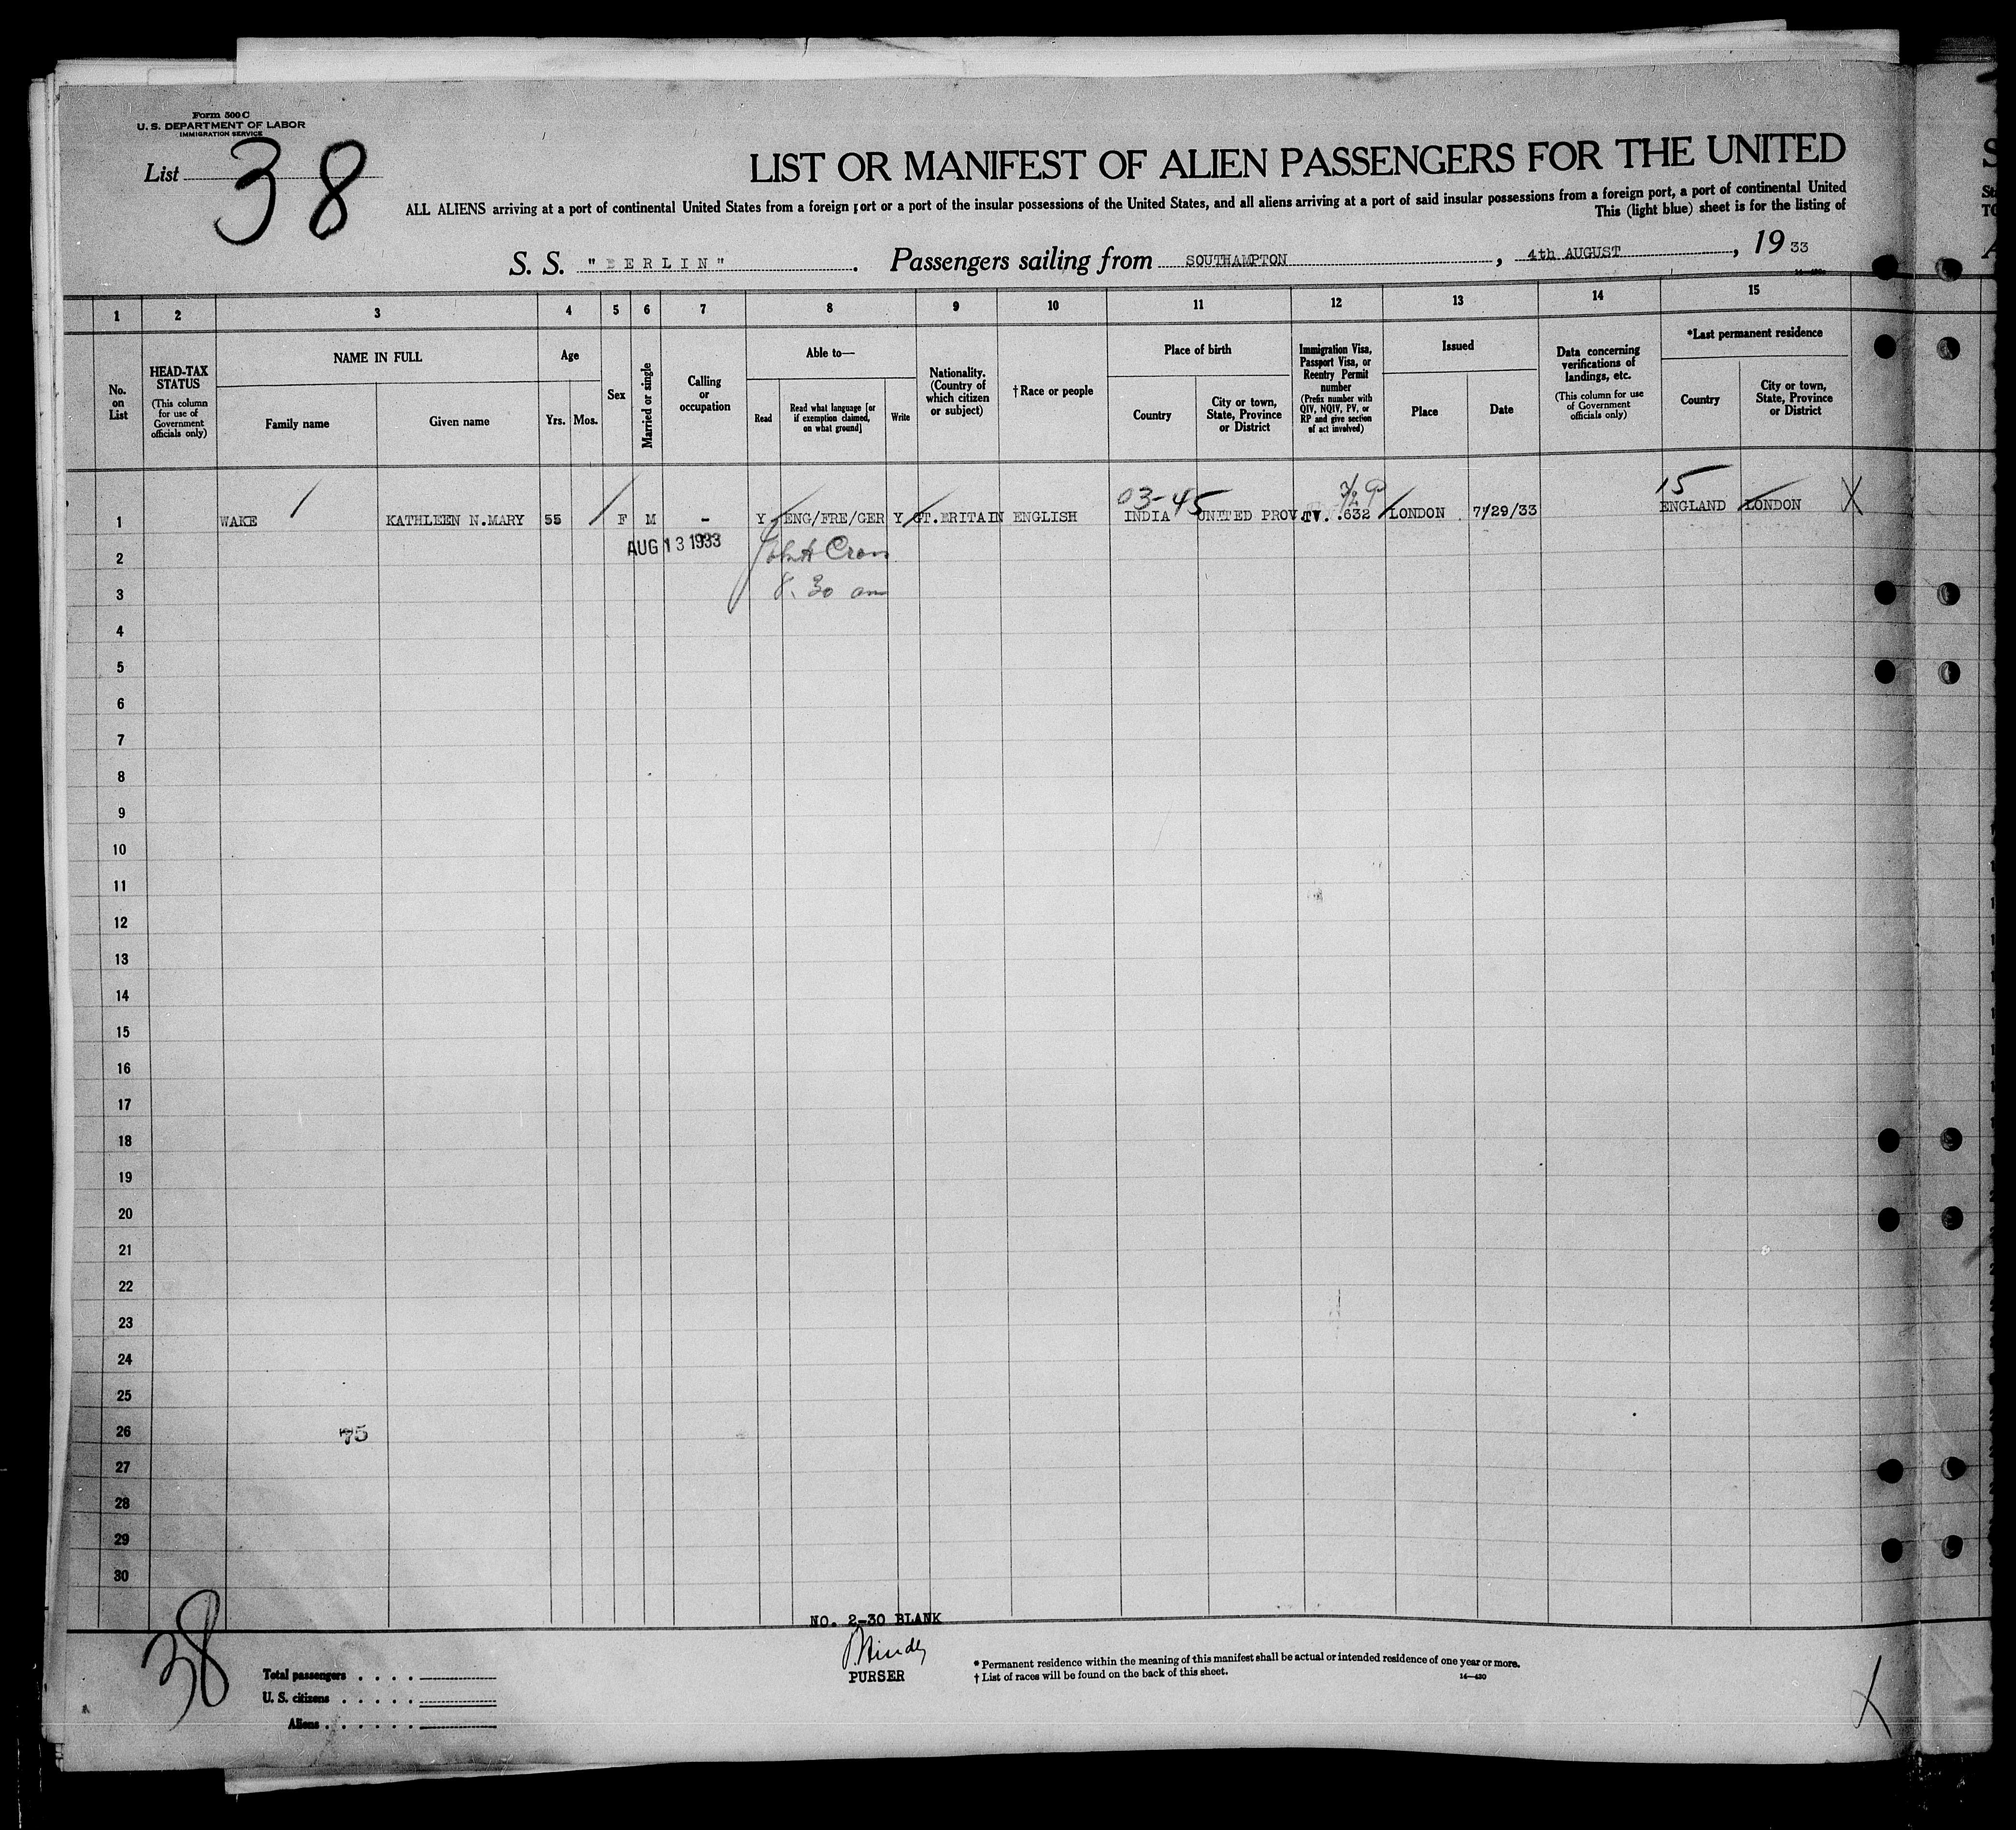 Form 500 C
U. S. DEPARTMENT OF LABOR
IMMIGRATION SERVICE
List 38
LIST OR MANIFEST OF ALIEN PASSENGERS FOR THE UNITED
ALL ALIENS arriving at a port of continental United States from a foreign port or a port of the insular possessions of the United States, and all aliens arriving at a port of said insular possessions from a foreign port, a port of continental United
This (light blue) sheet is for the listing of
S. S. "BERLIN". Passengers sailing from SOUTHAMPTON, 4th AUGUST, 19 33
1 2 3 4 5 6 7 8 9 10 11 12 13 14 15
No. on List
HEAD-TAX STATUS
(This column for use of Government officials only)
NAME IN FULL
Family name
Given name
Age
Yrs.
Mos.
Sex
Married or single
Calling or occupation
Able to—
Read
Read what language [or if exemption claimed, on what ground]
Write
Nationality. (Country of which citizen or subject)
†Race or people
Place of birth
Country
City or town, State, Province or District
Immigration Visa, Passport Visa, or Reentry Permit number
(Prefix number with QIV, NQIV, PV, or RP and give section of act involved)
Issued
Place
Date
Data concerning verifications of landings, etc.
(This column for use of Government officials only)
*Last permanent residence
Country
City or town, State, Province or District
03-45 15
1 WAKE KATHLEEN N.MARY 55 F M - Y ENG/FRE/GER Y GT.BRITAIN ENGLISH INDIA UNITED PROV. 632 LONDON 7/29/33 ENGLAND LONDON X
AUG 13 1933
2
8.30 am
3
4
5
6
7
8
9
10
11
12
13
14
15
16
17
18
19
20
21
22
23
24
25
26 75
27
28
29
30
NO. 2-30 BLANK
PURSER
38
Total passengers . . . .
U. S. citizens . . . . .
Aliens . . . . . .
* Permanent residence within the meaning of this manifest shall be actual or intended residence of one year or more.
† List of races will be found on the back of this sheet.
14—430
X